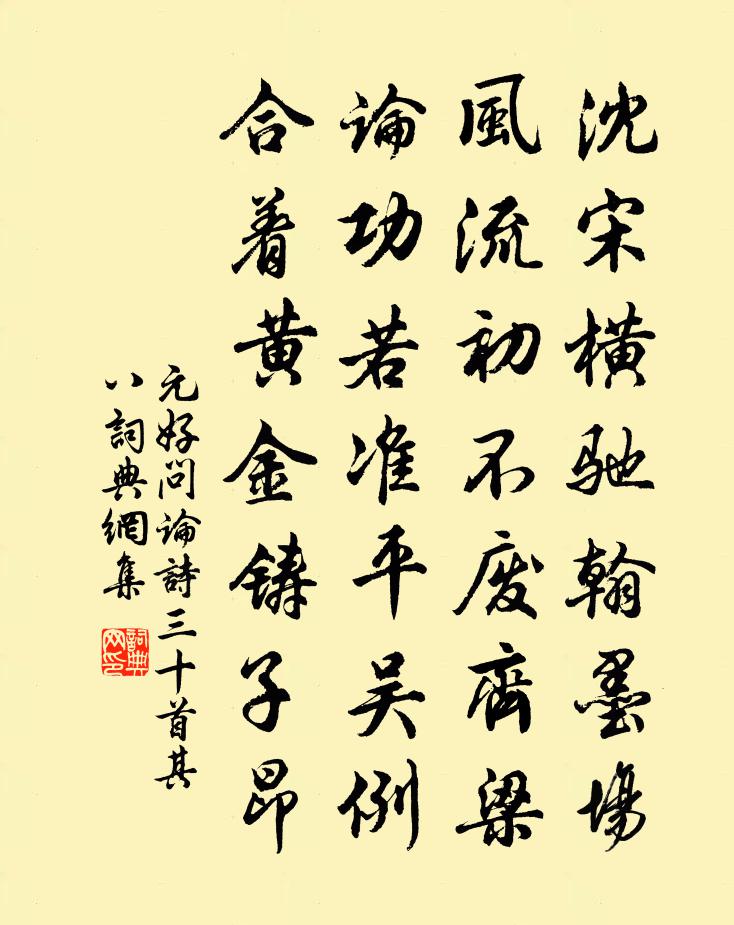 沈宋橫馳翰墨場
風流初不廢齊梁
論功若准平吴例
合着黄金鑄子昂
元好问論詩三十首其
八詞典網集
詞典
网印